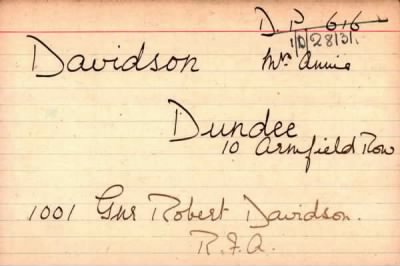 D. P 616
1/D/28131.
Davidson Mrs Annie
Dundee
10 Armfield Row
1001 Gnr Robert Davidson.
R.F.A.